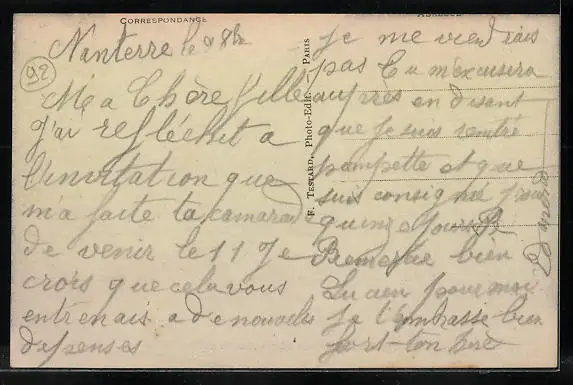 CORRESPONDANCE
Nanterre le 8 8h
92
Ma Chère fille
J'ai refléchit a
l'invitation que
m'a faite ta camarade
de venir le 11 Je
crois que cela vous
entrenais a de nouvelles
depenses
F. TESTARD, Photo-Edit. PARIS
je me viendrais
pas tu m'excusera
aupres en disant
que je suis rentré
pompette et que
suis consigné pour
quinze jours
Remercie bien
Lucien pour moi
Je t'embrasse bien
fort ton Père